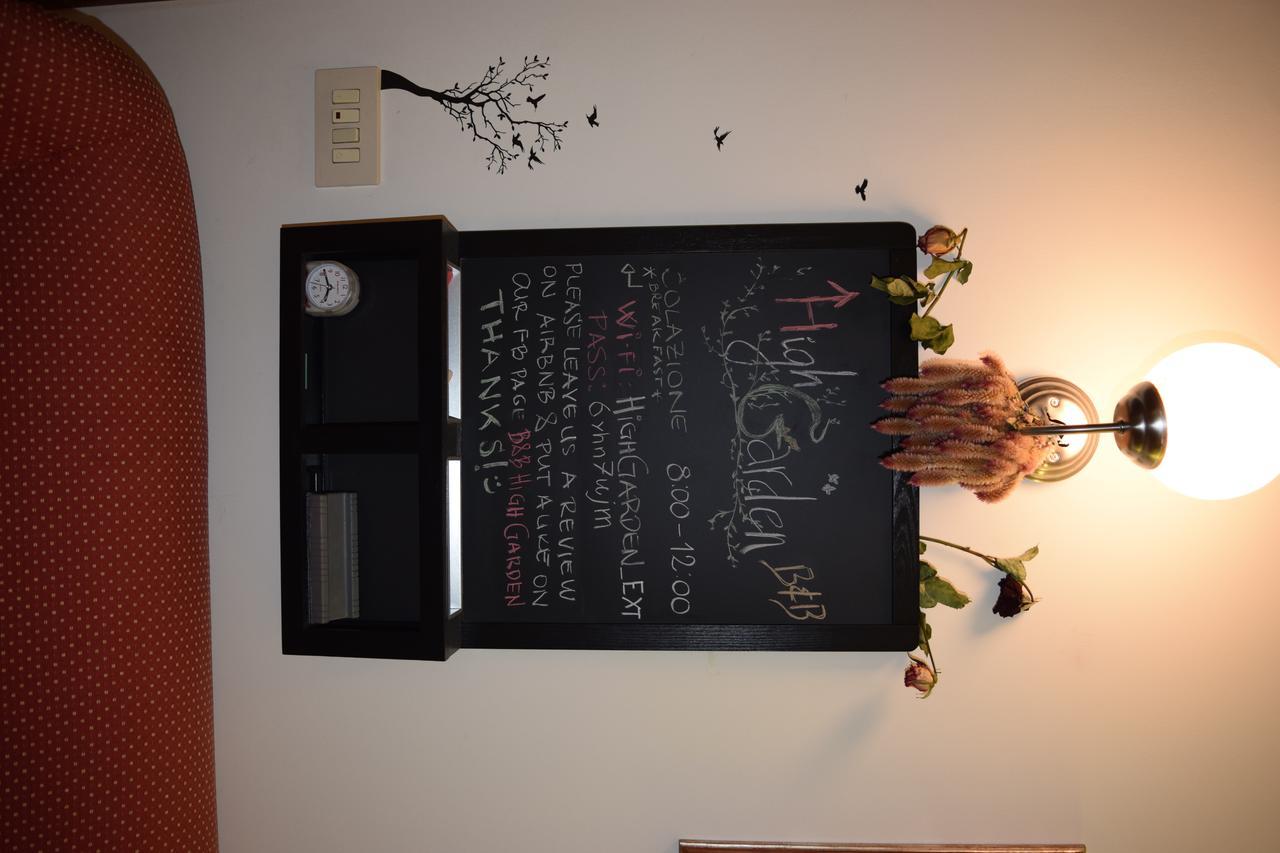 High Garden B&B
COLAZIONE 8:00-12:00
*BREAKFAST*
WiFi: HighGARDEN_EXT
PASS: 6yhn7ujm
PLEASE LEAVE US A REVIEW
ON AIRBNB & PUT A LIKE ON
OUR FB PAGE B&B HIGH GARDEN
THANKS!